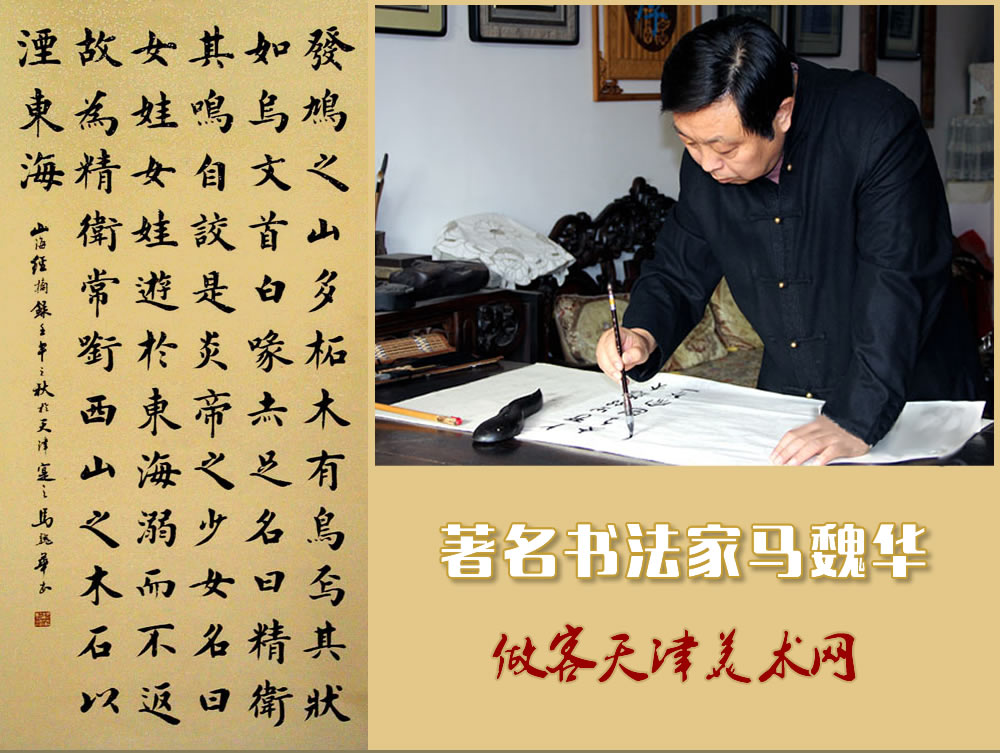 發鳩之山多柘木有鳥焉其狀
如烏文首白喙赤足名曰精衛
其鳴自詨是炎帝之少女名曰
女娃女娃遊於東海溺而不返
故為精衛常銜西山之木石以
湮東海
山海經摘錄壬午之秋於天津寔之馬魏華书
著名书法家马魏华
做客天津美术网